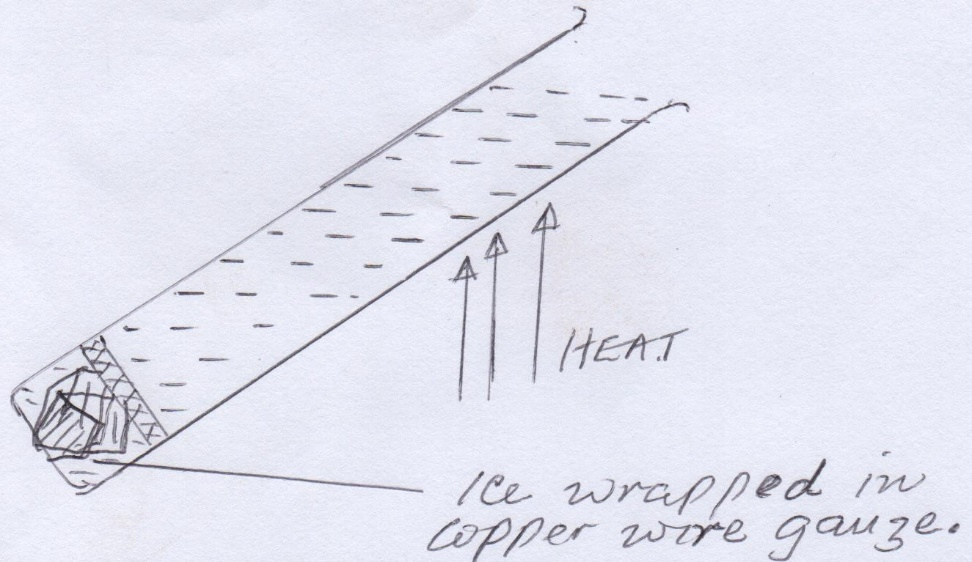 HEAT
Ice wrapped in
copper wire gauze.